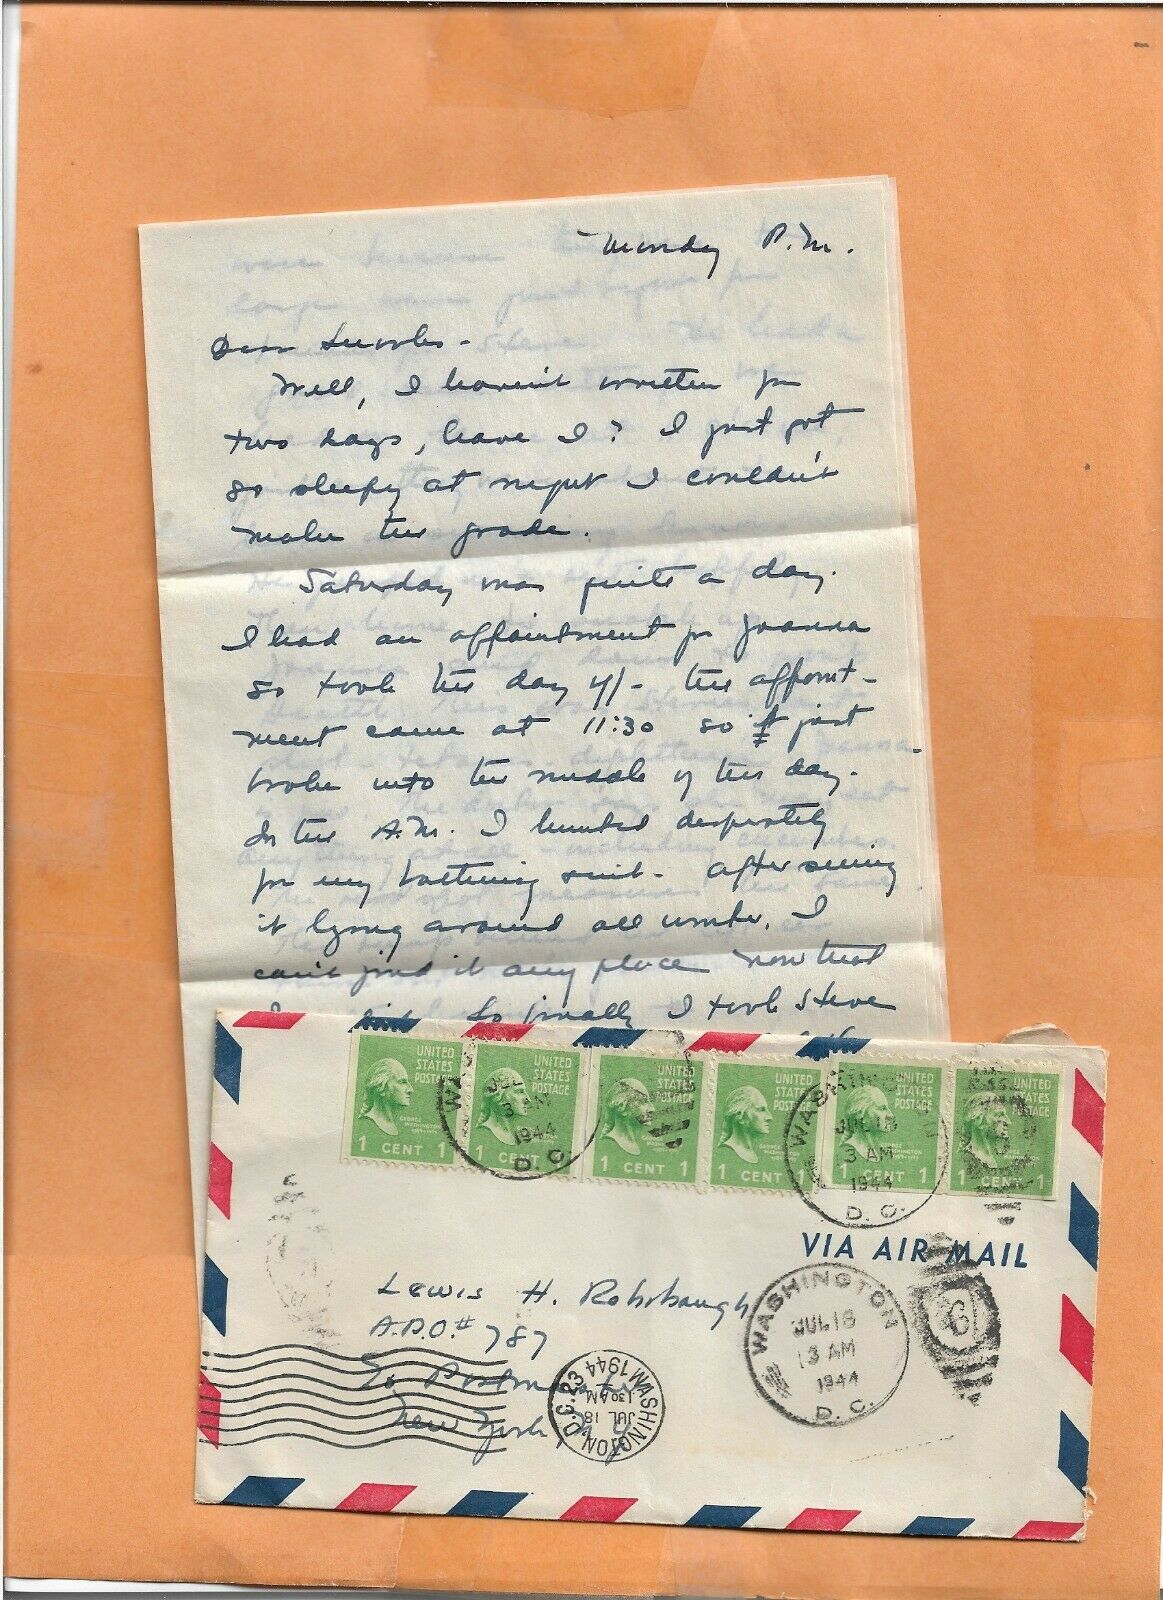 Monday P.M.
Dear
Well, I haven't written for
two days, have I? I just got
so sleepy at night I couldn't
make the grade.
Saturday was quite a day.
I had an appointment for Joanna
so took the day off - the appoint-
ment came at 11:30 so it just
broke into the middle of the day.
In the A.M. I hunted desperately
for my bathing suit - after seeing
it lying around all winter, I
can't find it any place now that
So finally I took Steve
UNITED STATES POSTAGE
GEORGE WASHINGTON
1 CENT 1
UNITED STATES POSTAGE
1 CENT 1
1 CENT 1
1 CENT 1
UNITED STATES POSTAGE
1 CENT 1
1 CENT 1
WASHINGTON
JUL 18
3 AM
1944
D. C.
VIA AIR MAIL
Lewis H. Rohrbaugh
A.P.O. # 787
c/o Postmaster
New York N.Y.
WASHINGTON D.C. 23
JUL 18
1 30 AM
1944
WASHINGTON
JUL 18
3 AM
1944
D. C.